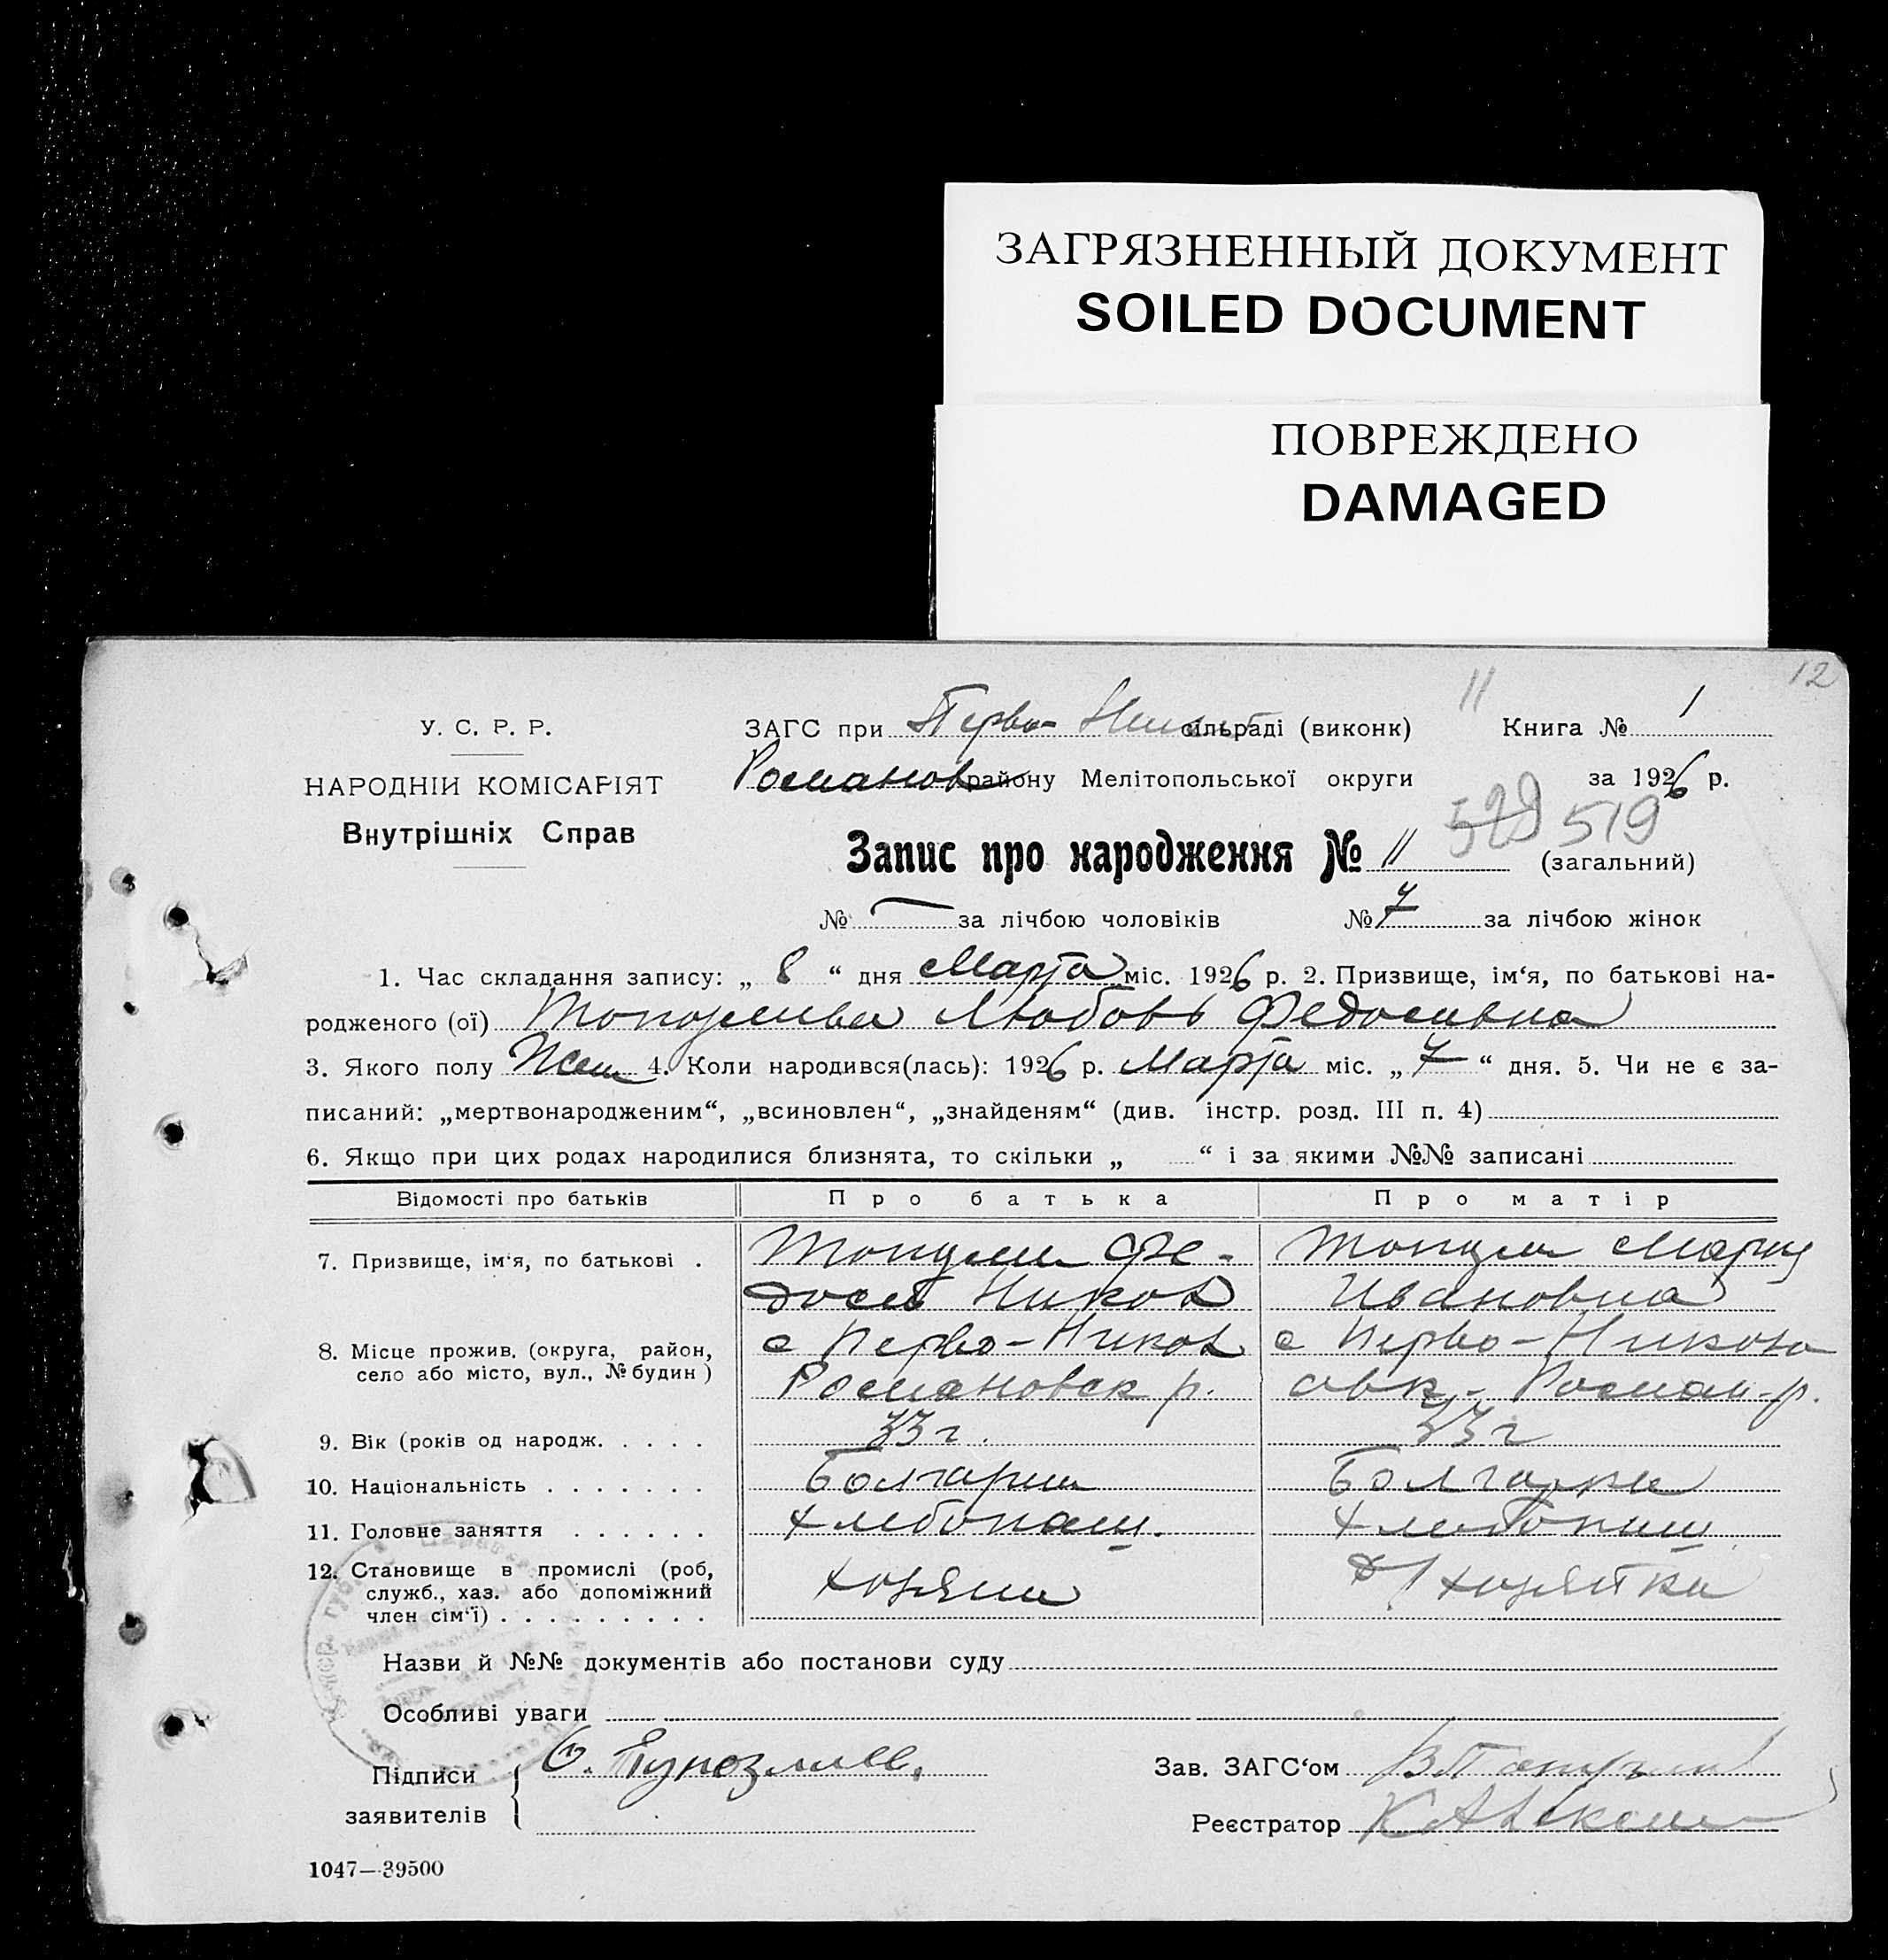 ЗАГРЯЗНЕННЫЙ ДОКУМЕНТ
SOILED DOCUMENT
ПОВРЕЖДЕНО
DAMAGED
12
11
У. С. Р. Р.
ЗАГС при Перво- сільраді (виконк) Книга № 1
НАРОДНІЙ КОМІСАРІЯТ
Романов району Мелітопольської округи за 1926 р.
Внутрішніх Справ
529 519
Запис про народження № 11 (загальний)
№ — за лічбою чоловіків № 7 за лічбою жінок
1. Час складання запису: „ 8 “ дня Марта міс. 1926 р. 2. Призвище, ім‘я, по батькові на-
родженого (ої) Любовь Федосивна
3. Якого полу Жен 4. Коли народився(лась): 1926 р. Марта міс. „ 7 “ дня. 5. Чи не є за-
писаний: „мертвонародженим“, „всиновлен“, „знайденям“ (див. інстр. розд. III п. 4)
6. Якщо при цих родах народилися близнята, то скільки „ “ і за якими №№ записані
Відомості про батьків Про батька Про матір
7. Призвище, ім‘я, по батькові . Фе- Мария
досій Никол Ивановна
8. Місце прожив. (округа, район, с Перво-Никол с Перво-Никола
село або місто, вул., № будин ) Романовск р. евк. Роман-р.
9. Вік (років од народж. . . . . 33 г. 33 г
10. Національність . . . . . . . Болгарин Болгарка
11. Головне заняття . . . . . . Хлебопаш. Хлебопаш
12. Становище в промислі (роб, хозяин д/хозяйка
служб., хаз. або допоміжний
член сім‘ї) . . . . . . . . .
Назви й №№ документів або постанови суду
Особливі уваги
Підписи
заявителів
Зав. ЗАГС‘ом
Реєстратор
1047—39500